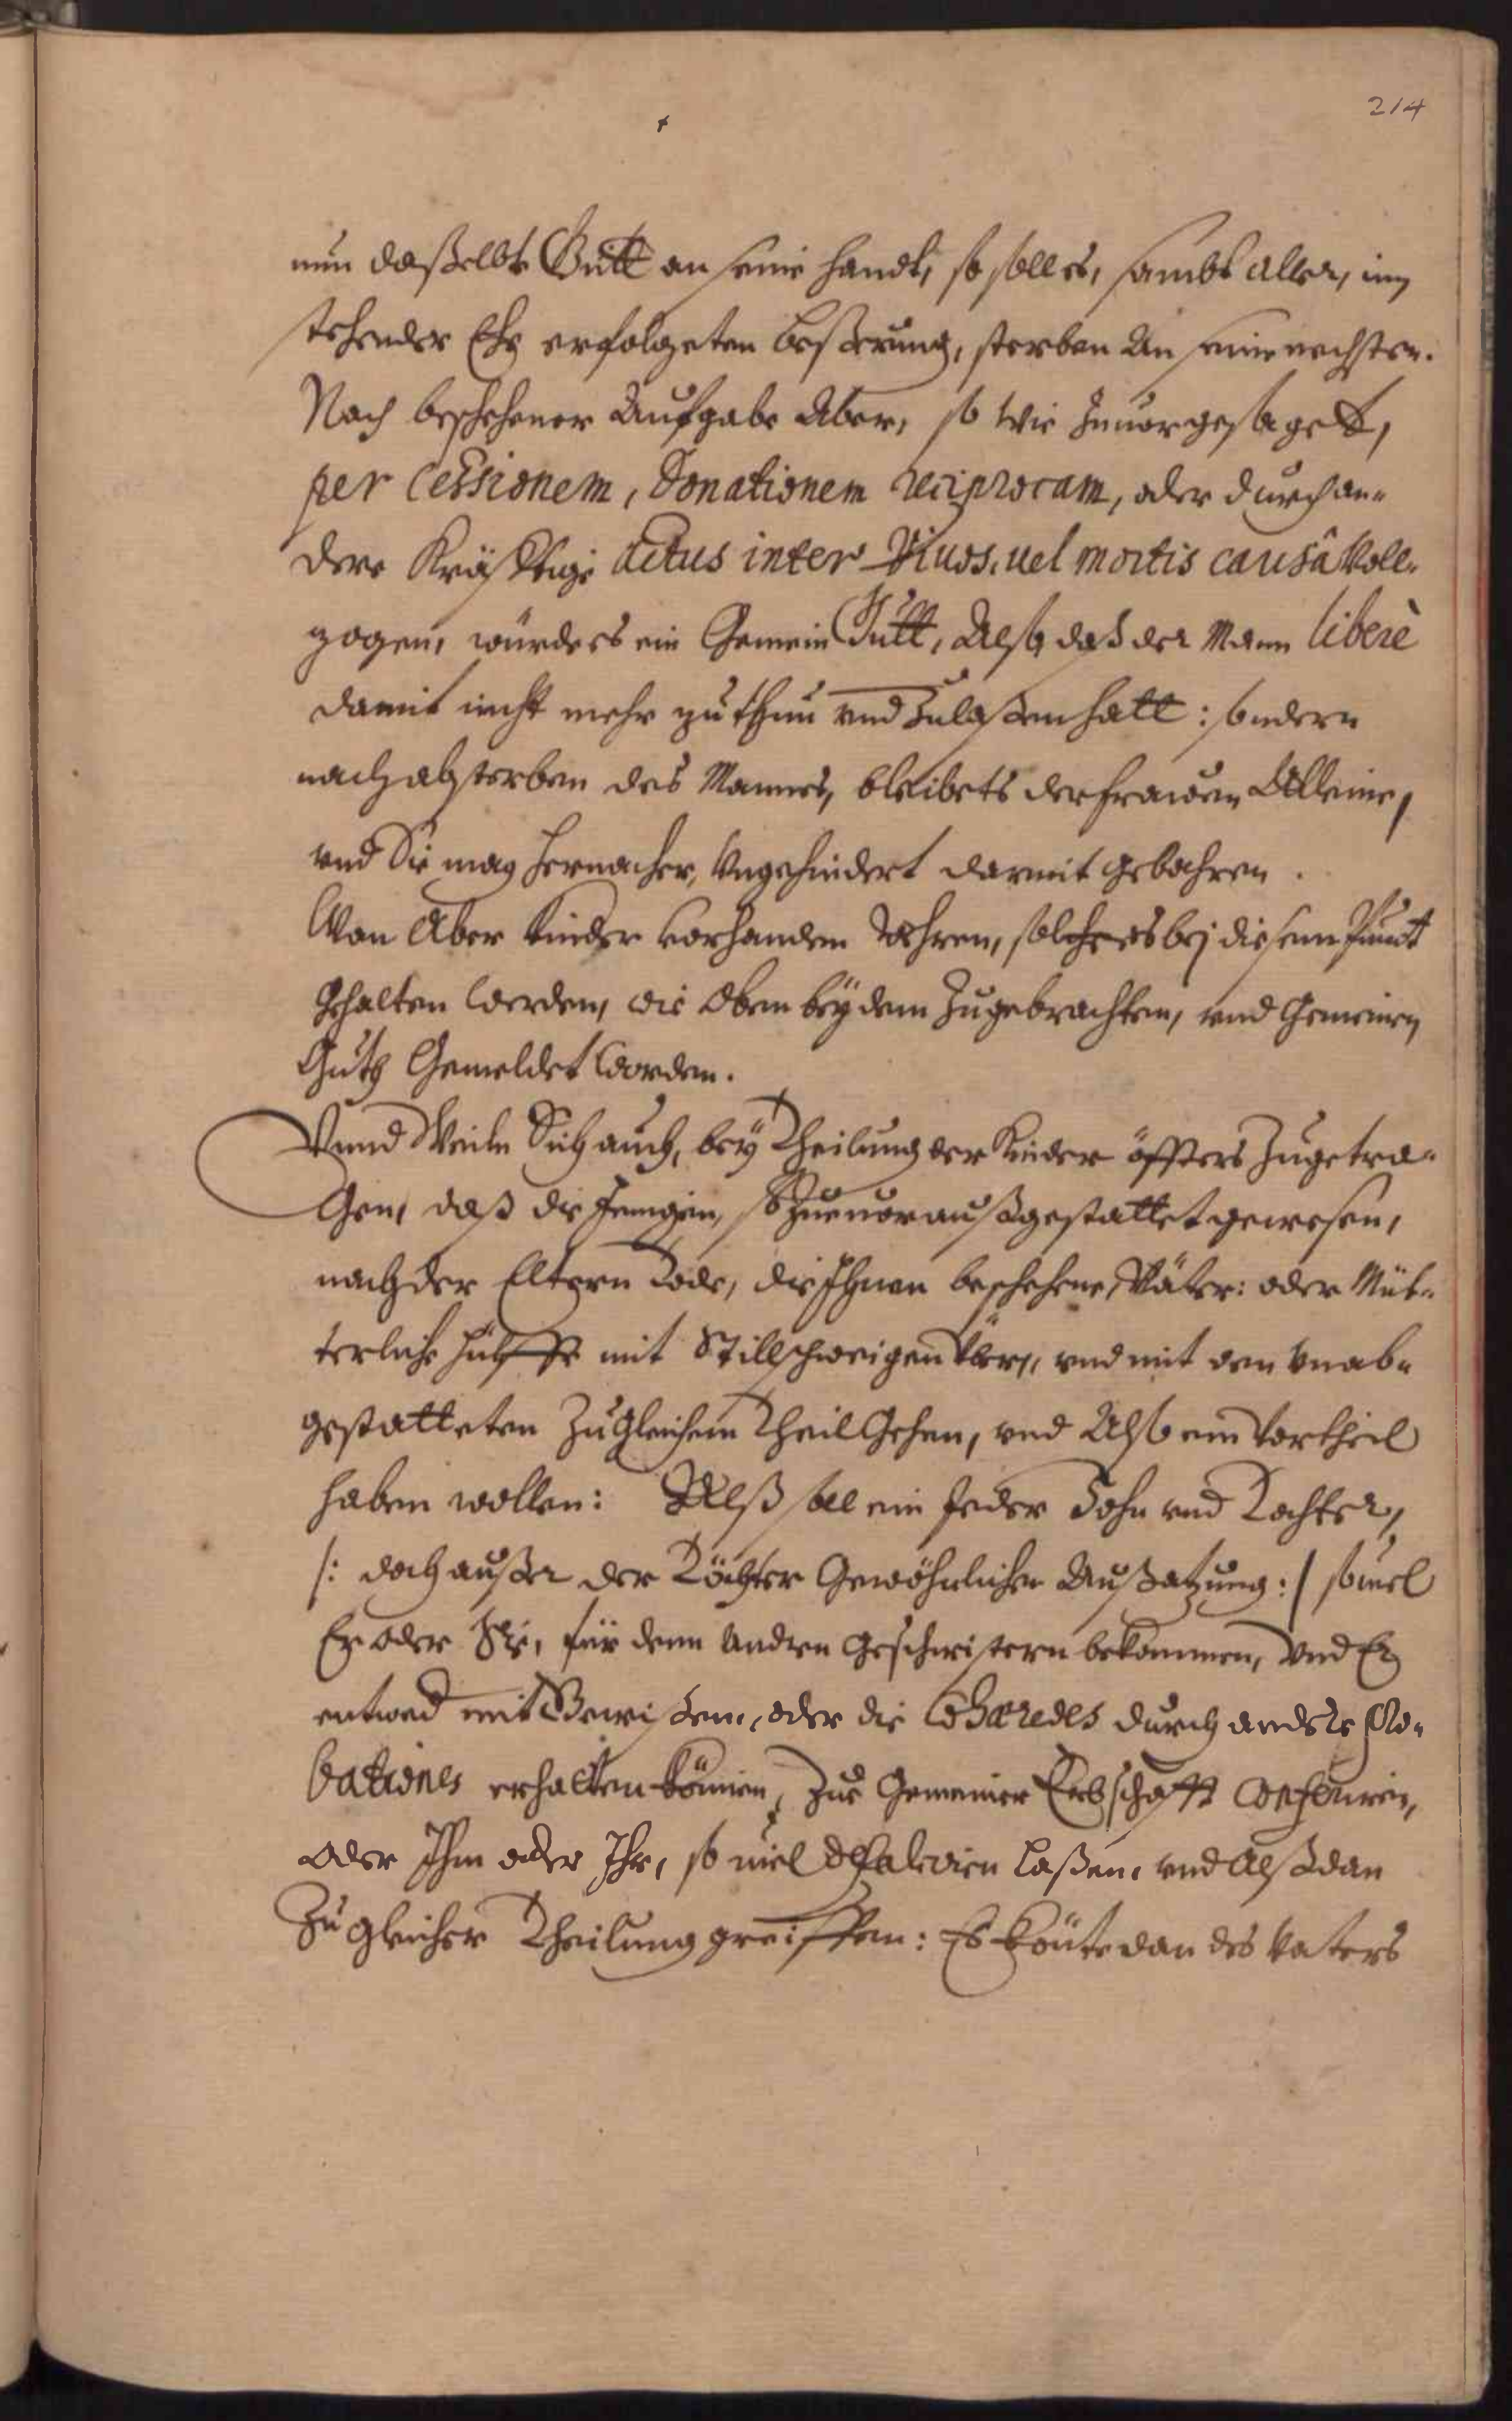 214
nun daßelbte Gutt an seine handt, so soll es, sambt aller, inn
stehender Ehe erfolgeten beßerung, sterben An seine nechsten.
Nach beschehener Aufgabe Aber, so wie zuuor gesaget,
per Cessionem, Donationem reciprocam, oder durch an-
dere Kräfftige actus inter Viuos, uel mortis causâ Voll-
zogen, würde es ein Gemein Gutt, Also, daß der Mann liberè
damit nicht mehr zu thun vnd Zulaßen hatt: sondern
nach absterben des Mannes, bleibets der frawen Alleine,
vnd Sie mag hernacher, Vngehindert darmit gebahren.
Wan Aber Kinder vorhanden wehren, sol es bej diesem Punct
Gehalten werden, wie Oben bey dem Zugebrachten, vnd Gemeinen
Gutt Gemeldet worden.
Vnnd Weiln Sich auch, bey Theilung der Kinder öffters Zugetra-
Gen, daß diejenigen, so Zuuor außgestattet gewesen,
nach der Eltern Tode, die Ihnen beschehene, Väter: oder Müt-
terliche hülffe mit Stillschweigen Vber, vnd mit den vnab-
gestatteten Zu Gleichem Theil Gehen, vnd Also ein Vortheil
haben wollen: Alß soll ein Jeder Sohn vnd Tochter,
/: doch außer der Töchter Gewöhnlichen Außatzung :/ souiel
Er oder Sie, für denn Andren Geschwistern bekommen, Vnd Er
entwed mit Gewißen, oder die Cohæredes durch andere Pro-
bationes erhalten können, Zur Gemeiner Erbschafft Conferiren,
Oder Ihm oder Ihr, so uiel defalciren laßen, vnd Alßdan
Zu Gleicher Theilung greiffen: Es köntte dan des Vaters